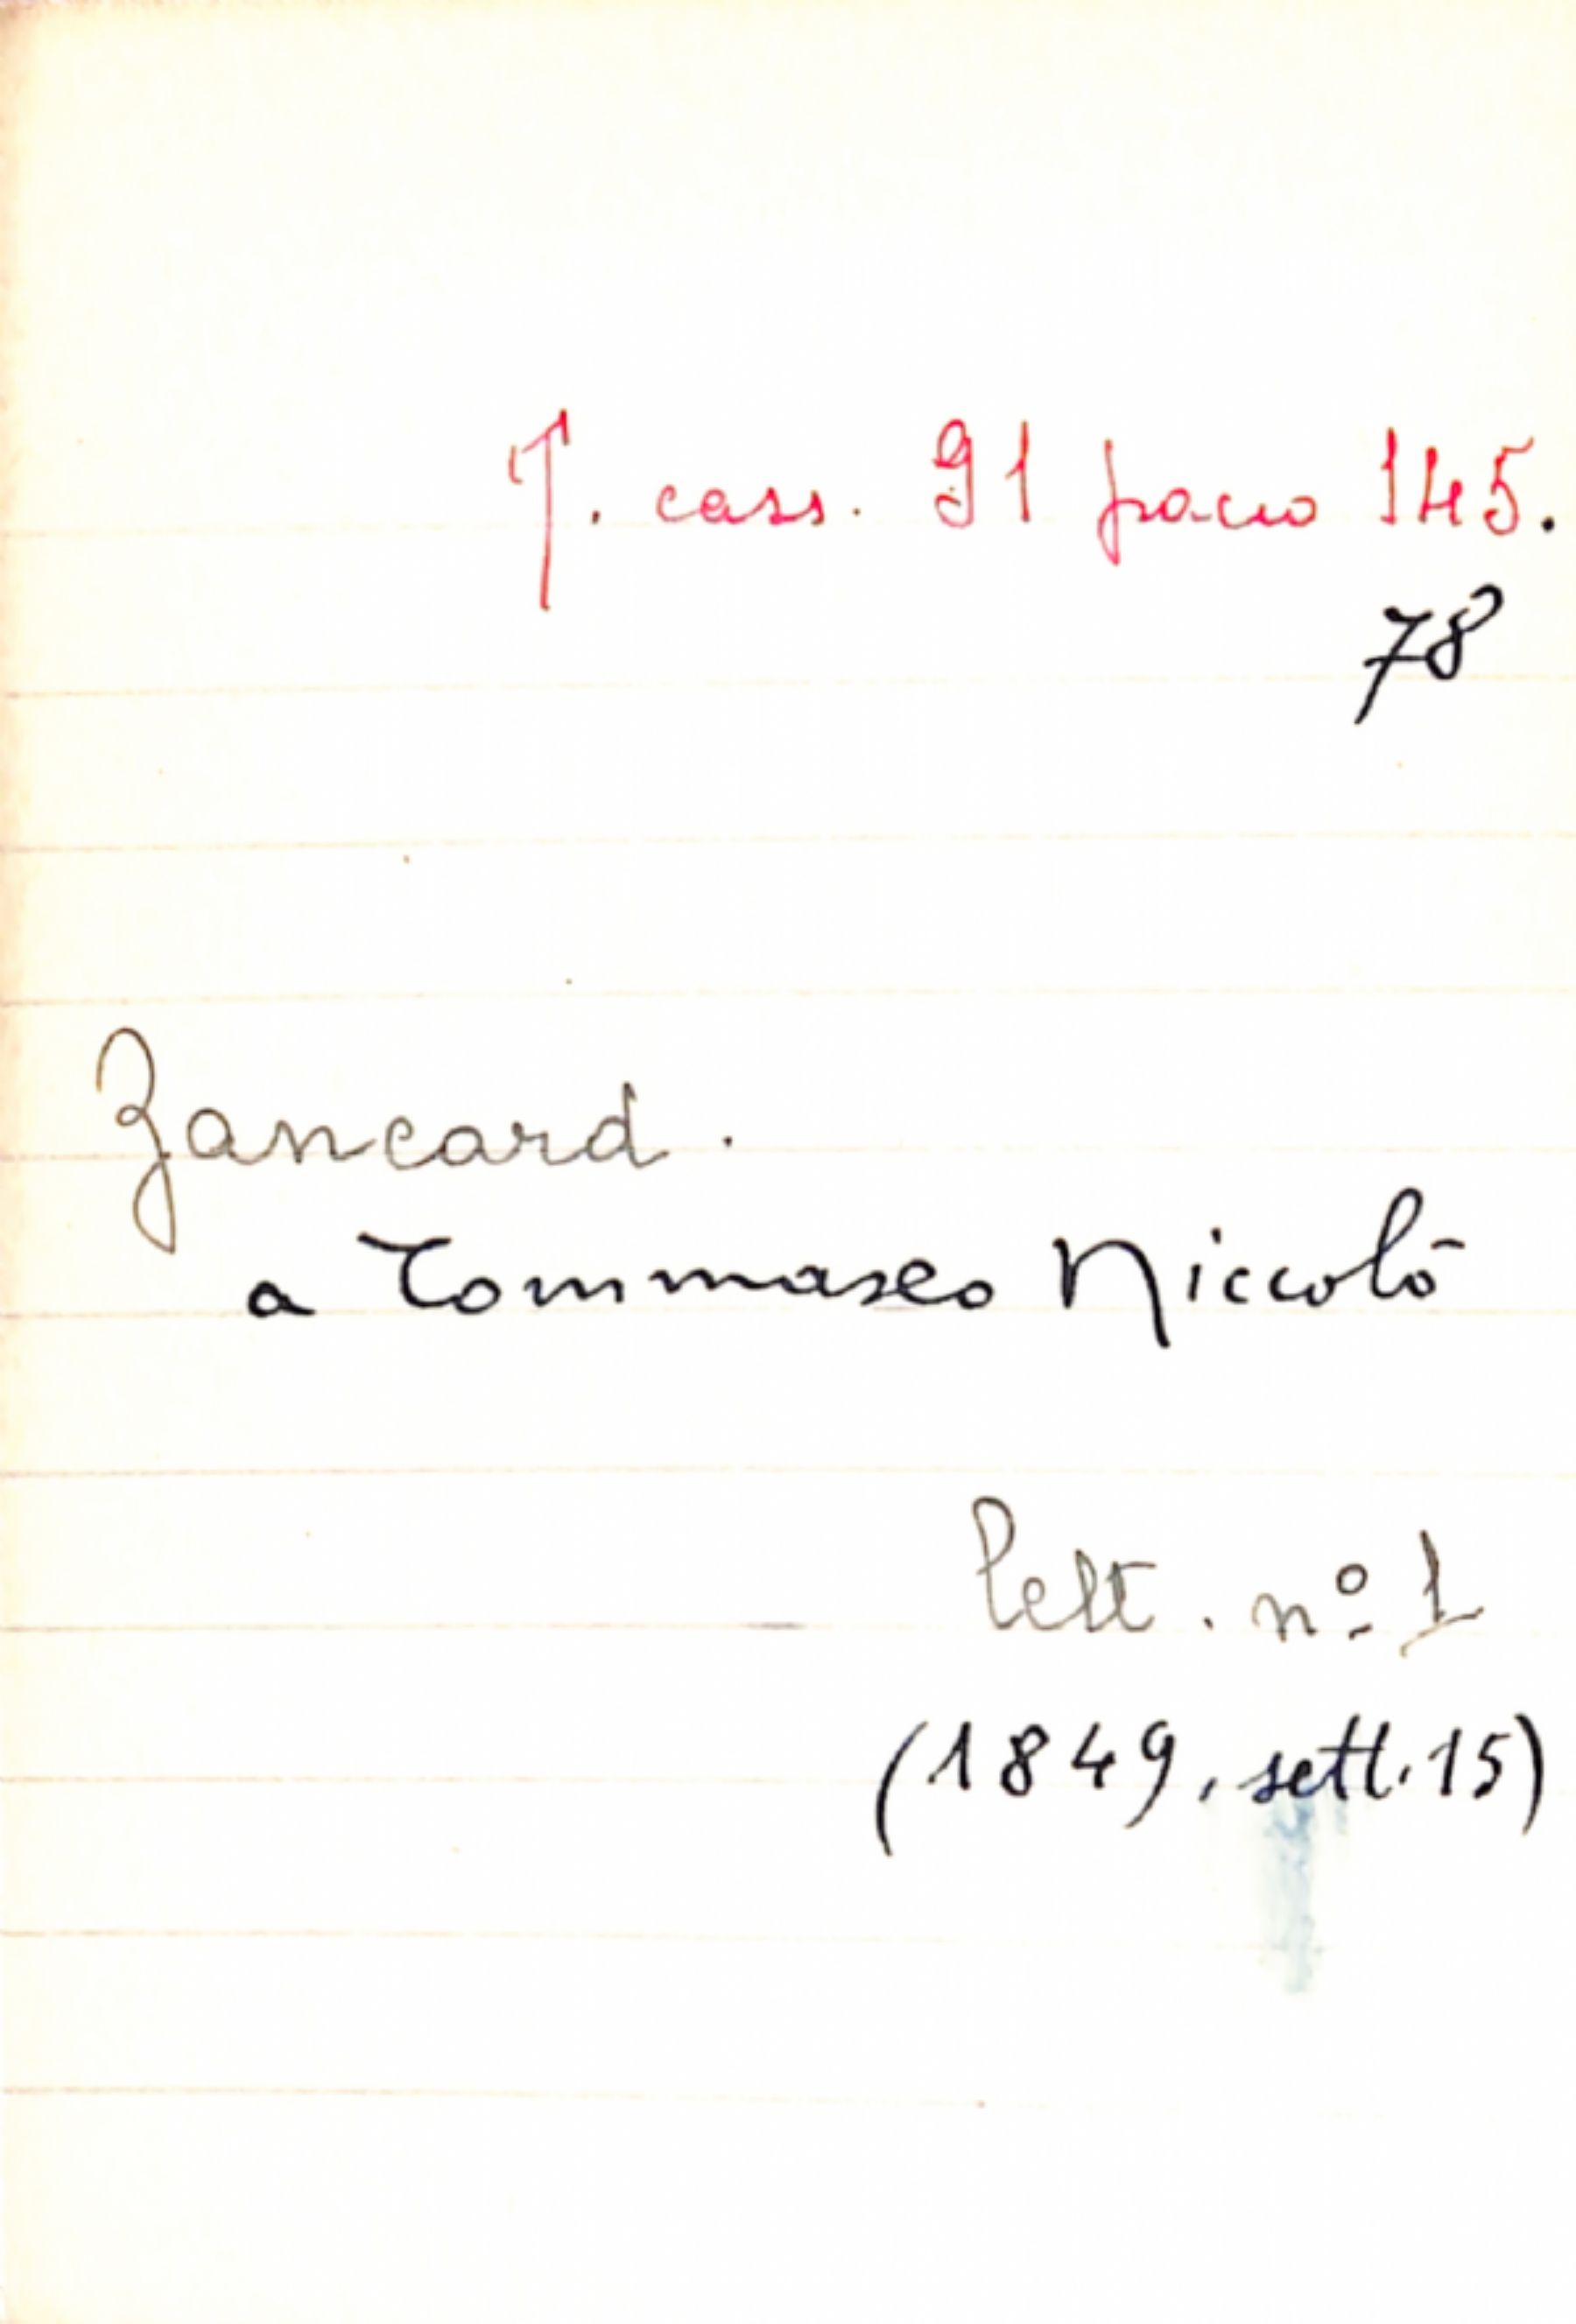 T. cass. 91 pacco 145.
78
Zancard.
a Tommaseo Niccolò
lett. nº 1
(1849, sett. 15)